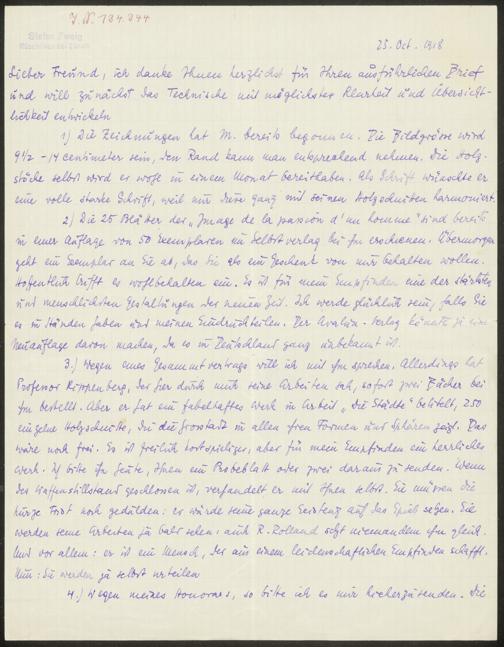 J.N. 184.244
Stefan Zweig
Rüschlikon bei Zürich
25. Oct. 1918
Lieber Freund, ich danke Ihnen herzlichst für Ihren ausführlichen Brief
und will zunächst das Technische mit möglichster Klarheit und Übersicht-
lichkeit entwickeln
1) Die Zeichnungen hat M. bereits begonnen. Die Bildgrösse wird
9½ - 14 centimeter sein, den Rand kann man entsprechend nehmen. Die Holz-
stöcke selbst wird er wohl in einem Monat bereithaben. Als Schrift wünschte er
eine volle starke Schrift, weil nur diese ganz mit seinen Holzschnitten harmoniert.
2) Die 25 Blätter der „Image de la passion d'un homme" sind bereits
in einer Auflage von 50 Exemplaren im Selbstverlag bei ihm erschienen. Übermorgen
geht ein Exemplar an Sie ab, das Sie als ein Geschenk von mir behalten wollen.
Hoffentlich trifft es wohlbehalten ein. Es ist für mein Empfinden eine der stärksten
und menschlichsten Gestaltungen der neuen Zeit. Ich werde glücklich sein, falls Sie
es in Händen haben und meinen Eindruck teilen. Der Avalun-Verlag könnte ja eine
Neuauflage davon machen, da es in Deutschland ganz unbekannt ist.
3.) Wegen eines Gesammtvertrags will ich mit ihm sprechen. Allerdings hat
Professor Kippenberg, der hier durch mich seine Arbeiten sah, sofort zwei Bücher bei
ihm bestellt. Aber er hat ein fabelhaftes Werk in Arbeit „Die Städte" betitelt, 250
einzelne Holzschnitte, die die Grosstadt in allen ihren Formen und Sphären zeigt. Das
wäre noch frei. Es ist freilich kostspieliger, aber für mein Empfinden ein herrliches
Werk. Ich bitte ihn heute, Ihnen ein Probeblatt oder zwei daraus zu senden. Wenn
der Waffenstillstand geschlossen ist, verhandelt er mit Ihnen selbst. Sie müssen die
kurze Frist noch gedulden: er würde seine ganze Existenz auf das Spiel setzen. Sie
werden seine Arbeiten ja bald sehen: auch R. Rolland setzt niemandem ihm gleich.
Und vor allem: er ist ein Mensch, der aus einem leidenschaftlichen Empfinden schafft.
Nun: Sie werden ja selbst urteilen
4.) Wegen meines Honorars, so bitte ich es mir hierherzusenden. Die